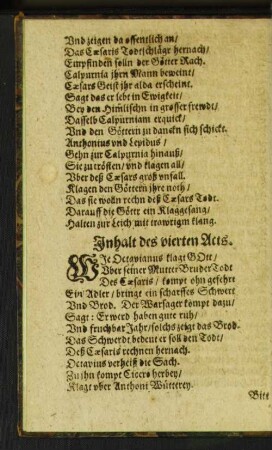 Vnd zeigen da offentlich an/
Das Cæsaris Todtschläge hernach/
Empfinden solln der Götter Rach.
Calpurnia jhrn Mann beweint/
Cæsars Geist jhr alda erscheint.
Sagt das er lebt in Ewigkeit/
Bey den Him̃lischn in grosser frewdt/
Dasselb Calpurniam erquick/
Vnd den Göttern zu dancken sich schickt.
Anthonius vnd Lepidus/
Gehn zur Calpurnia hinauß/
Sie zu trösten/ vnd klagen all/
Vber deß Cæsars groß vnfall.
Klagen den Göttern jhre noth/
Das sie wolln rechn deß Cæsars Todt.
Darauff die Götter ein Klaggesang/
Halten zur Leich mit trawrigm klang.
Inhalt des vierten Acts.
WIe Octavianus klagt GOtt/
Vber seiner Mutter Bruder Todt
Des Cæsaris/ kompt ohn gefehrt
Ein Adler/ bringt ein scharffes Schwert
Vnd Brod. Der Warsager kompt dazu/
Sagt: Er werd haben gute ruh/
Vnd fruchtbar Jahr/ solchs zeigt das Brod.
Das Schwerdt bedeut er soll den Todt/
Deß Cæsaris rechnen hernach.
Octavius verheist die Sach.
Zu jhn kompt Cicero herbey/
Klagt vber Anthoni Wütterey.
Bitt